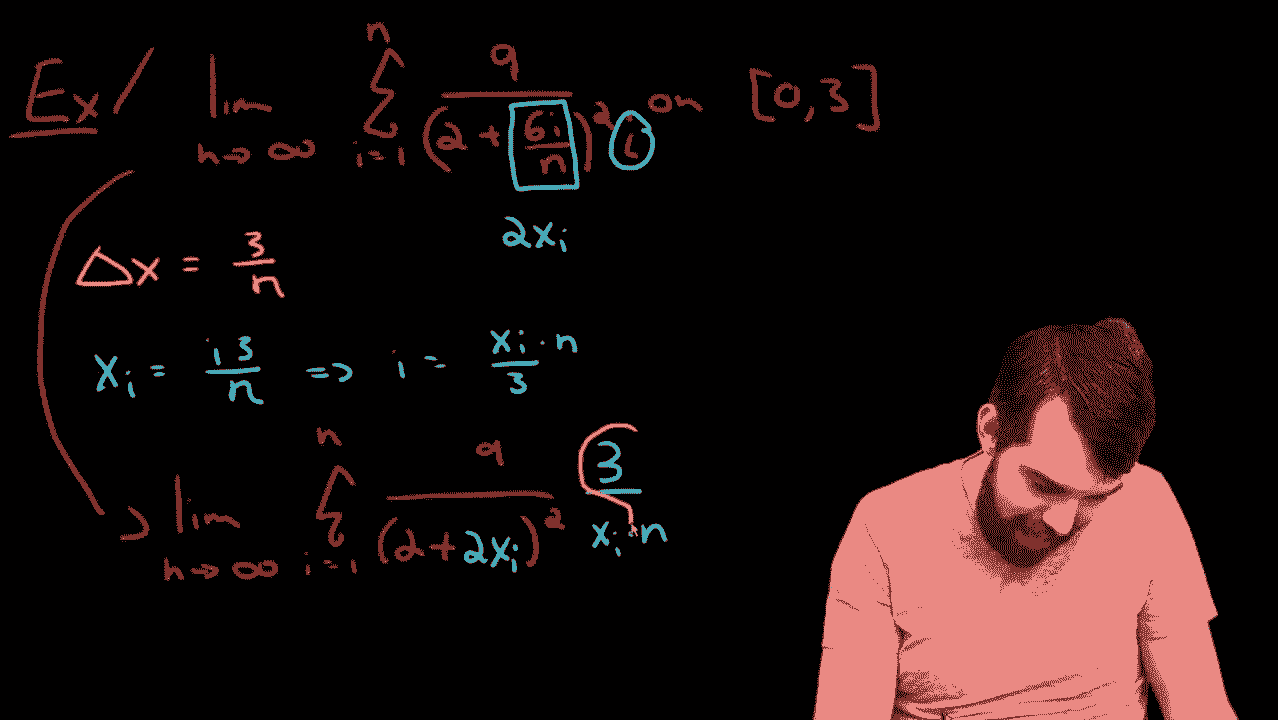 Ex/ lim n→∞ n Σ i=1 9/((2 + 6i/n)² i) on [0,3]
2xᵢ
Δx = 3/n
xᵢ = i3/n ⇒ i = xᵢ·n/3
lim n→∞ n Σ i=1 9/(2+2xᵢ)² 3/(xᵢ·n)